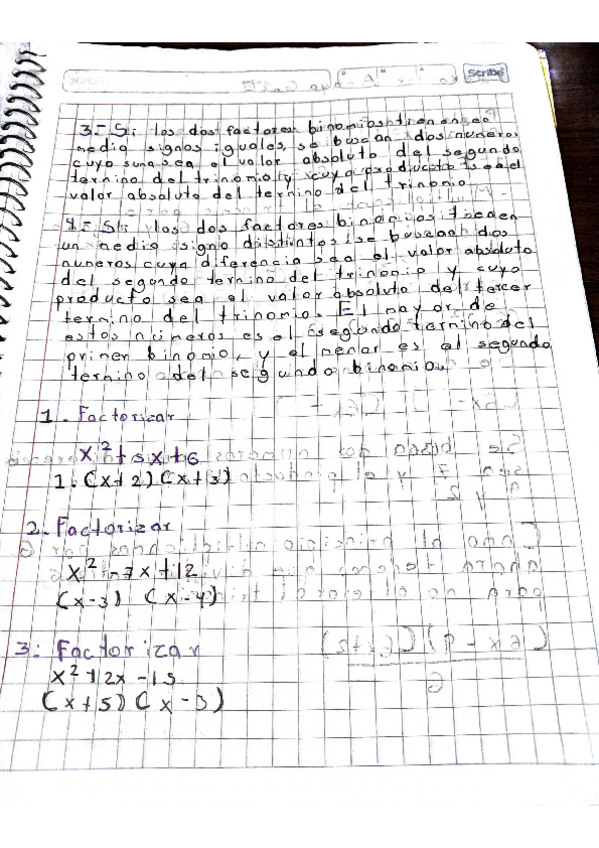 Scribe
3.- Si los dos factores binomios tienen en
medio signos iguales, se buscan dos numeros
cuyo suma sea el valor absoluto del segundo
termino del trinomio y cuyo producto sea el
valor absoluto del termino del trinomio
4.- Si los dos factores binomios tienen
un medio signo distintos se buscan dos
numeros cuya diferencia sea el valor absoluto
del segundo termino del trinomio y cuyo
producto sea el valor absoluto del tercer
termino del trinomio. El mayor de
estos números es el segundo termino del
primer binomio, y el menor es el segundo
termino del segundo binomio
1. Factorizar
x²+5x+6
1. (x+2)(x+3)
2. Factorizar
x²-7x+12
(x-3) (x-4)
3: Factorizar
x²+2x-15
(x+5)(x-3)